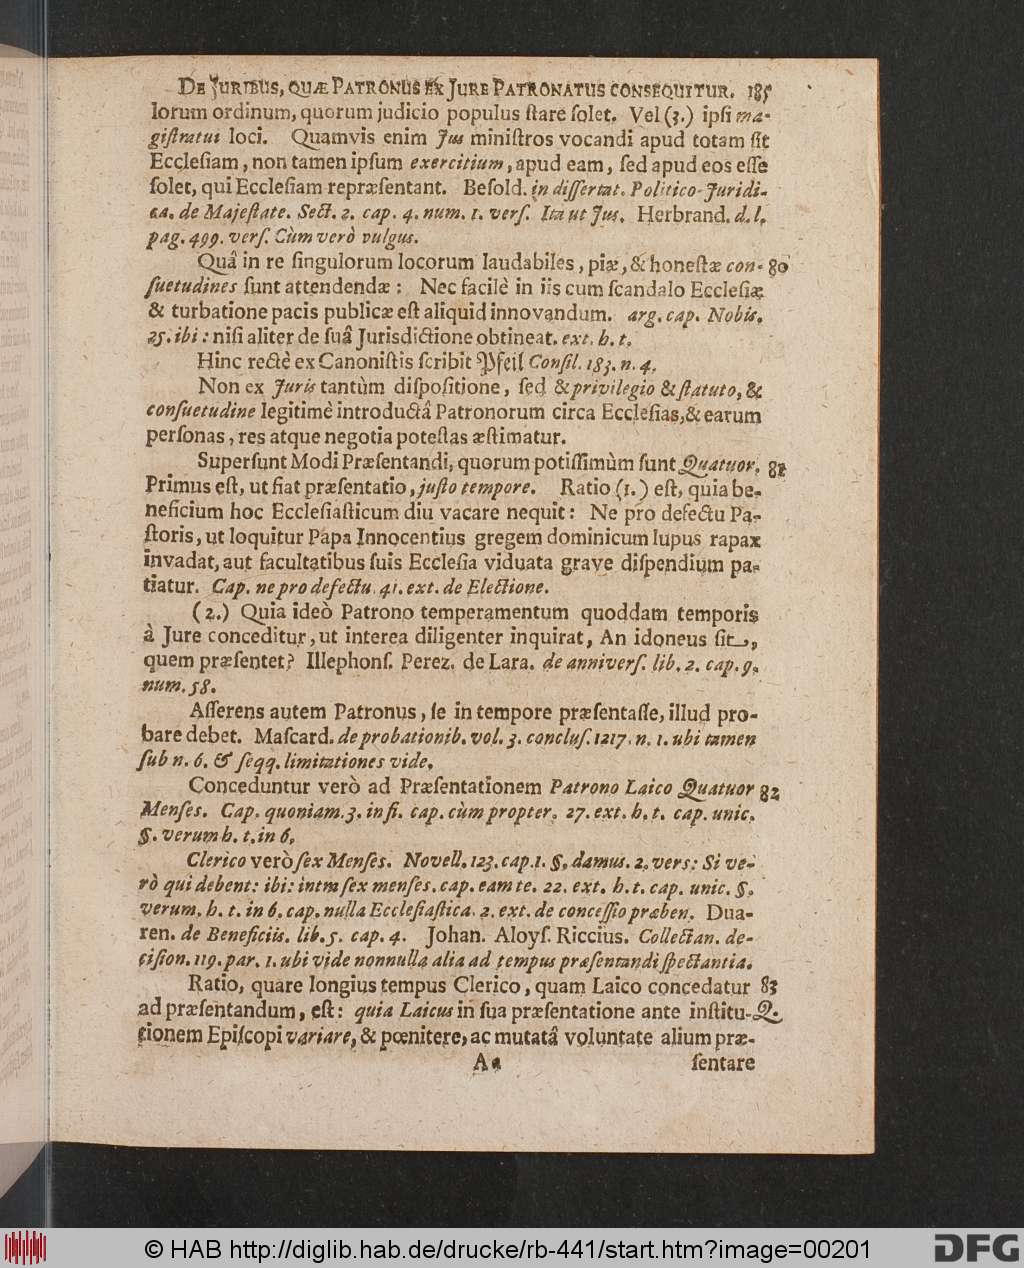 DE JURIBUS, QUÆ PATRONUS EX JURE PATRONATUS CONSEQUITUR. 185
lorum ordinum, quorum judicio populus ſtare ſolet. Vel (3.) ipſi ma-
giſtratui loci. Quamvis enim Jus miniſtros vocandi apud totam ſit
Eccleſiam, non tamen ipſum exercitium, apud eam, ſed apud eos eſſe
ſolet, qui Eccleſiam repræſentant. Beſold. in diſſertat. Politico-Juridi-
ca. de Majeſtate. Sect. 2. cap. 4. num. 1. verſ. Ita ut Jus. Herbrand. d. l.
pag. 499. verſ. Cùm verò vulgus.
Quâ in re ſingulorum locorum laudabiles, piæ, & honeſtæ con- 80
ſuetudines ſunt attendendæ: Nec facilè in iis cum ſcandalo Eccleſiæ
& turbatione pacis publicæ eſt aliquid innovandum. arg. cap. Nobis.
25. ibi: niſi aliter de ſuâ Jurisdictione obtineat. ext. h. t.
Hinc rectè ex Canoniſtis ſcribit Pfeil Conſil. 183. n. 4.
Non ex Juris tantùm diſpoſitione, ſed & privilegio & ſtatuto, &
conſuetudine legitimè introductâ Patronorum circa Eccleſias, & earum
perſonas, res atque negotia poteſtas æſtimatur.
Superſunt Modi Præſentandi, quorum potiſſimùm ſunt Quatuor. 81
Primus eſt, ut fiat præſentatio, juſto tempore. Ratio (1.) eſt, quia be-
neficium hoc Eccleſiaſticum diu vacare nequit: Ne pro defectu Pa-
ſtoris, ut loquitur Papa Innocentius gregem dominicum lupus rapax
invadat, aut facultatibus ſuis Eccleſia viduata grave diſpendium pa-
tiatur. Cap. ne pro defectu. 41. ext. de Electione.
(2.) Quia ideò Patrono temperamentum quoddam temporis
à Jure conceditur, ut interea diligenter inquirat, An idoneus ſit,
quem præſentet? Illephonſ. Perez. de Lara. de anniverſ. lib. 2. cap. 9.
num. 58.
Aſſerens autem Patronus, ſe in tempore præſentaſſe, illud pro-
bare debet. Maſcard. de probationib. vol. 3. concluſ. 1217. n. 1. ubi tamen
ſub n. 6. & ſeqq. limitationes vide.
Conceduntur verò ad Præſentationem Patrono Laico Quatuor 82
Menſes. Cap. quoniam. 3. in fi. cap. cùm propter. 27. ext. h. t. cap. unic.
§. verum h. t. in 6.
Clerico verò ſex Menſes. Novell. 123. cap. 1. §. damus. 2. vers: Si ve-
rò qui debent: ibi: intra ſex menſes. cap. eam te. 22. ext. h. t. cap. unic. §.
verum. h. t. in 6. cap. nulla Eccleſiaſtica. 2. ext. de conceſſio præben. Dua-
ren. de Beneficiis. lib. 5. cap. 4. Johan. Aloyſ. Riccius. Collectan. de-
ciſion. 119. par. 1. ubi vide nonnulla alia ad tempus præſentandi ſpectantia.
Ratio, quare longius tempus Clerico, quam Laico concedatur 83
ad præſentandum, eſt: quia Laicus in ſua præſentatione ante inſtitu- Q.
tionem Epiſcopi variare, & pœnitere, ac mutatâ voluntate alium præ-
Aa ſentare
© HAB http://diglib.hab.de/drucke/rb-441/start.htm?image=00201
DFG